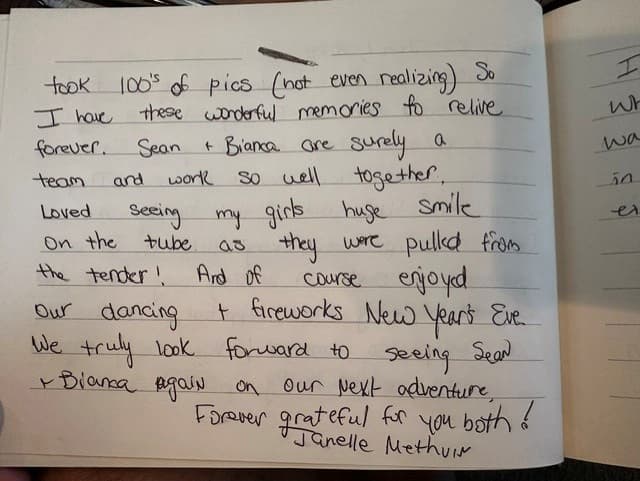 took 100's of pics (not even realizing) So
I have these wonderful memories to relive
forever. Sean + Bianca are surely a
team and work so well together.
Loved seeing my girls huge smile
on the tube as they were pulled from
the tender! And of course enjoyed
our dancing + fireworks New Year's Eve.
We truly look forward to seeing Sean
+ Bianca again on our next adventure,
Forever grateful for you both!
Janelle Methvin
I
wh
wa
in